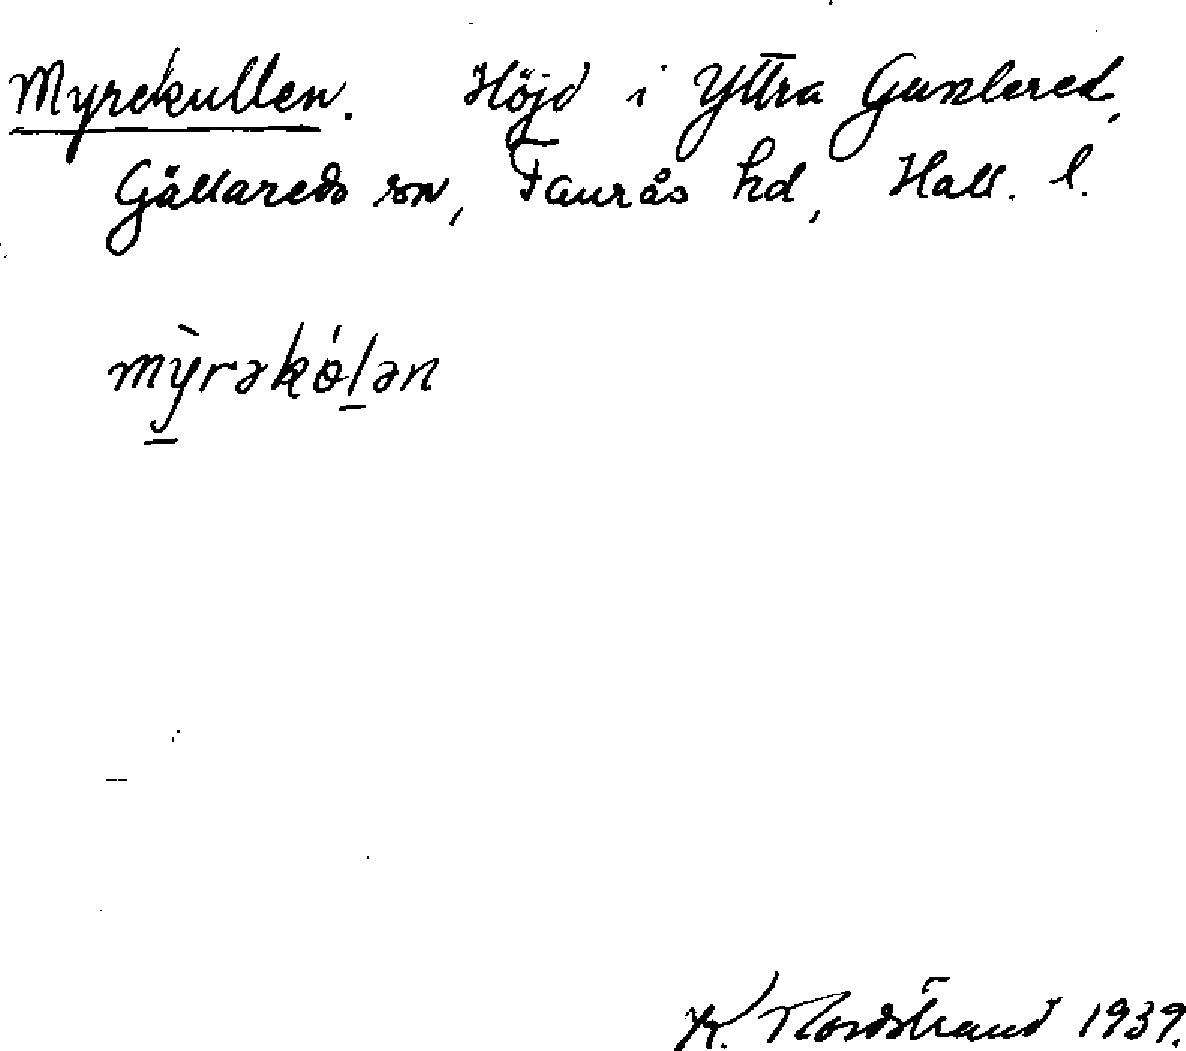 Myrekullen. Höjd i Yttra Gunlered,
Gällareds sn, Faurås hd, Hall. l.
mỳrəkó̵lən
K. Nordstrand 1939.